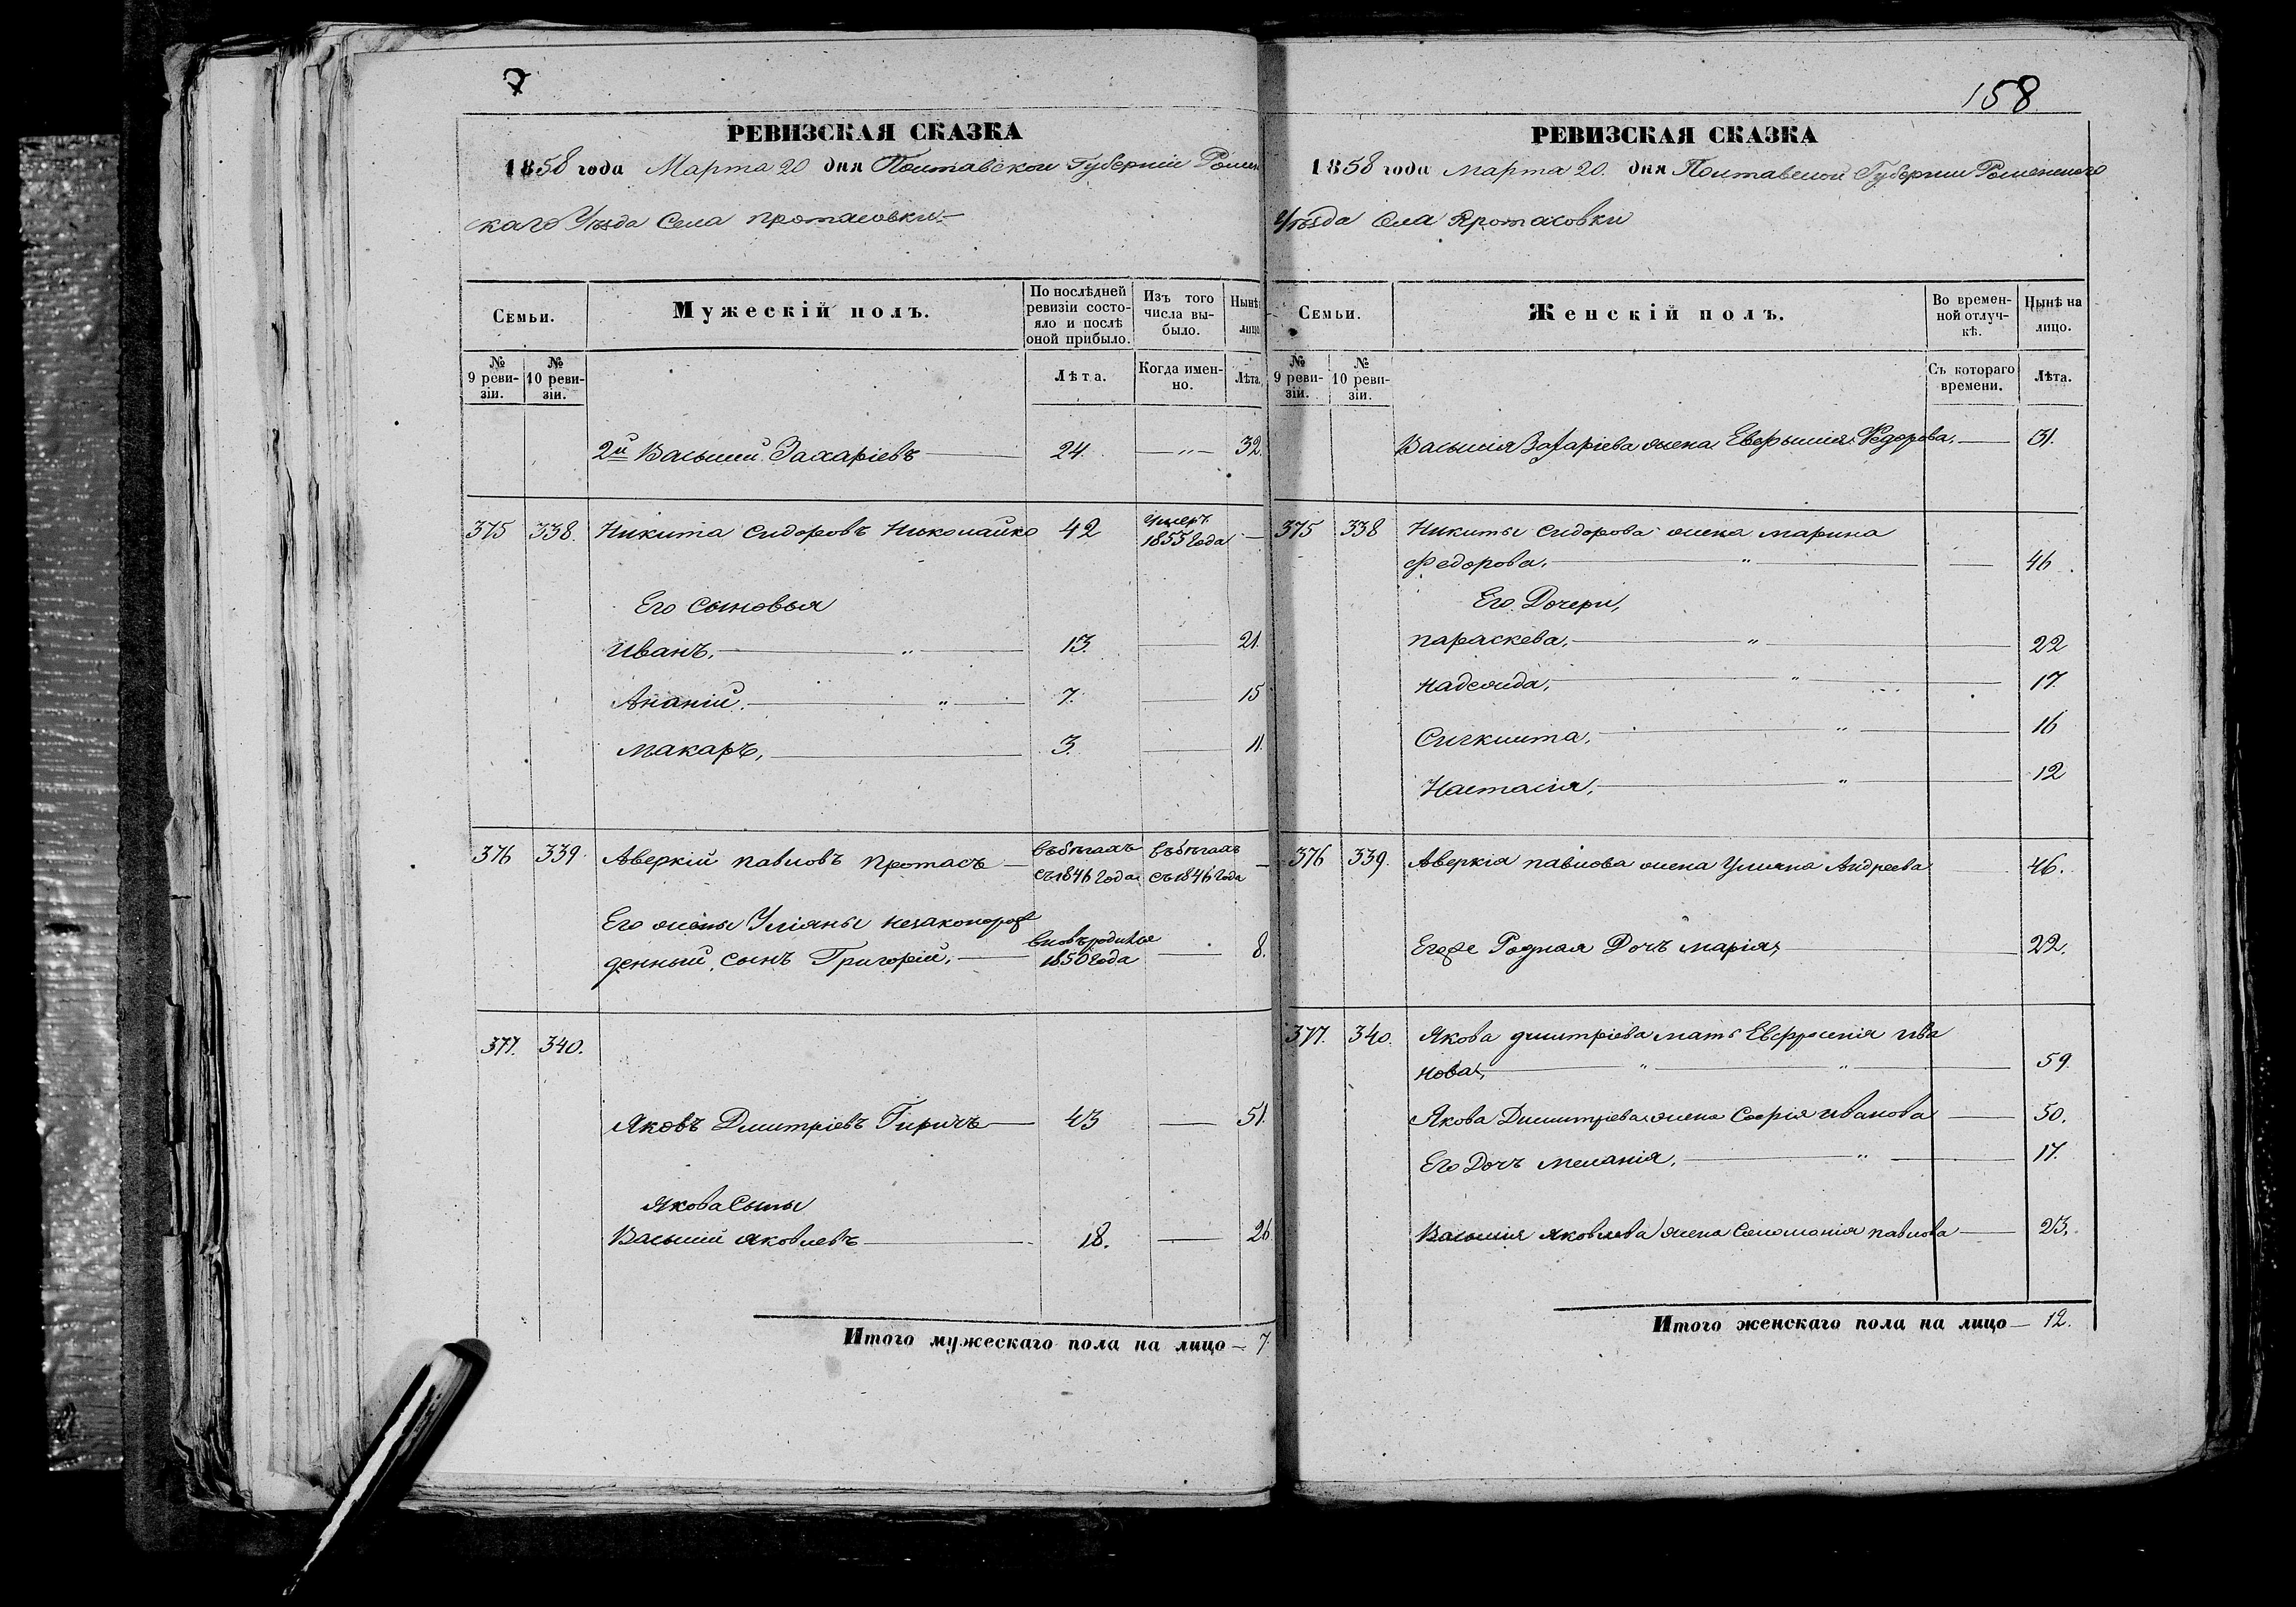 158
РЕВИЗСКАЯ СКАЗКА
1858 года Марта 20 дня Полтавской Губерніи Ромен
скаго Уѣзда Села Протасовки
Семьи.
Мужескій полъ.
По послѣдней ревизіи состояло и послѣ оной прибыло.
Изъ того числа выбыло.
Нынѣ на лицо
№ 9 ревизіи.
№ 10 ревизіи.
Лѣта.
Когда именно.
Лѣта.
2й Василий Захаріевъ 24 32
375 338. Никита Сидоровъ Николайко 42 умеръ 1855 года
Его сыновья
Иванъ, 13. 21.
Ананій. 7. 15
Макаръ, 3. 11.
376 339 Аверкій Павловъ Протасъ въ бѣгахъ съ 1846 года въ бѣгахъ съ 1846 года
Его жены Уліяны незаконорож
денный сынъ Григорій, 1850 года 8.
377. 340.
Яковъ Дмитріевъ Гиричъ 43 51.
Якова Сыны
Василий Яковлевъ 18. 26
Итого мужескаго пола на лицо 7
РЕВИЗСКАЯ СКАЗКА
1858 года Марта 20. дня Полтавской Губернии Роменского
Уѣзда Села Протасовки
Семьи.
Женскій полъ.
Во временной отлучкѣ.
Нынѣ на лицо.
№ 9 ревизіи.
№ 10 ревизіи.
Съ котораго времени.
Лѣта.
Василия Захаріева жена Федорова. 31.
375 338 Никиты Сидорова жена Марина
Федорова. 46
Его Дочери,
Параскева, 22
Надежида, 17.
16
Настасія, 12
376 339. Аверкія Павлова жена Уліяна Андреева 46.
Егоже Родная Дочъ Марія, 22.
377. 340. Якова Дмитріева мать Евфросенія Ива
нова, 59.
Якова Димитріева жена Софія Иванова 50.
Его Дочъ Меланія. 17.
Василия Яковлева жена Соломанія Павлова 23.
Итого женскаго пола на лицо 12.